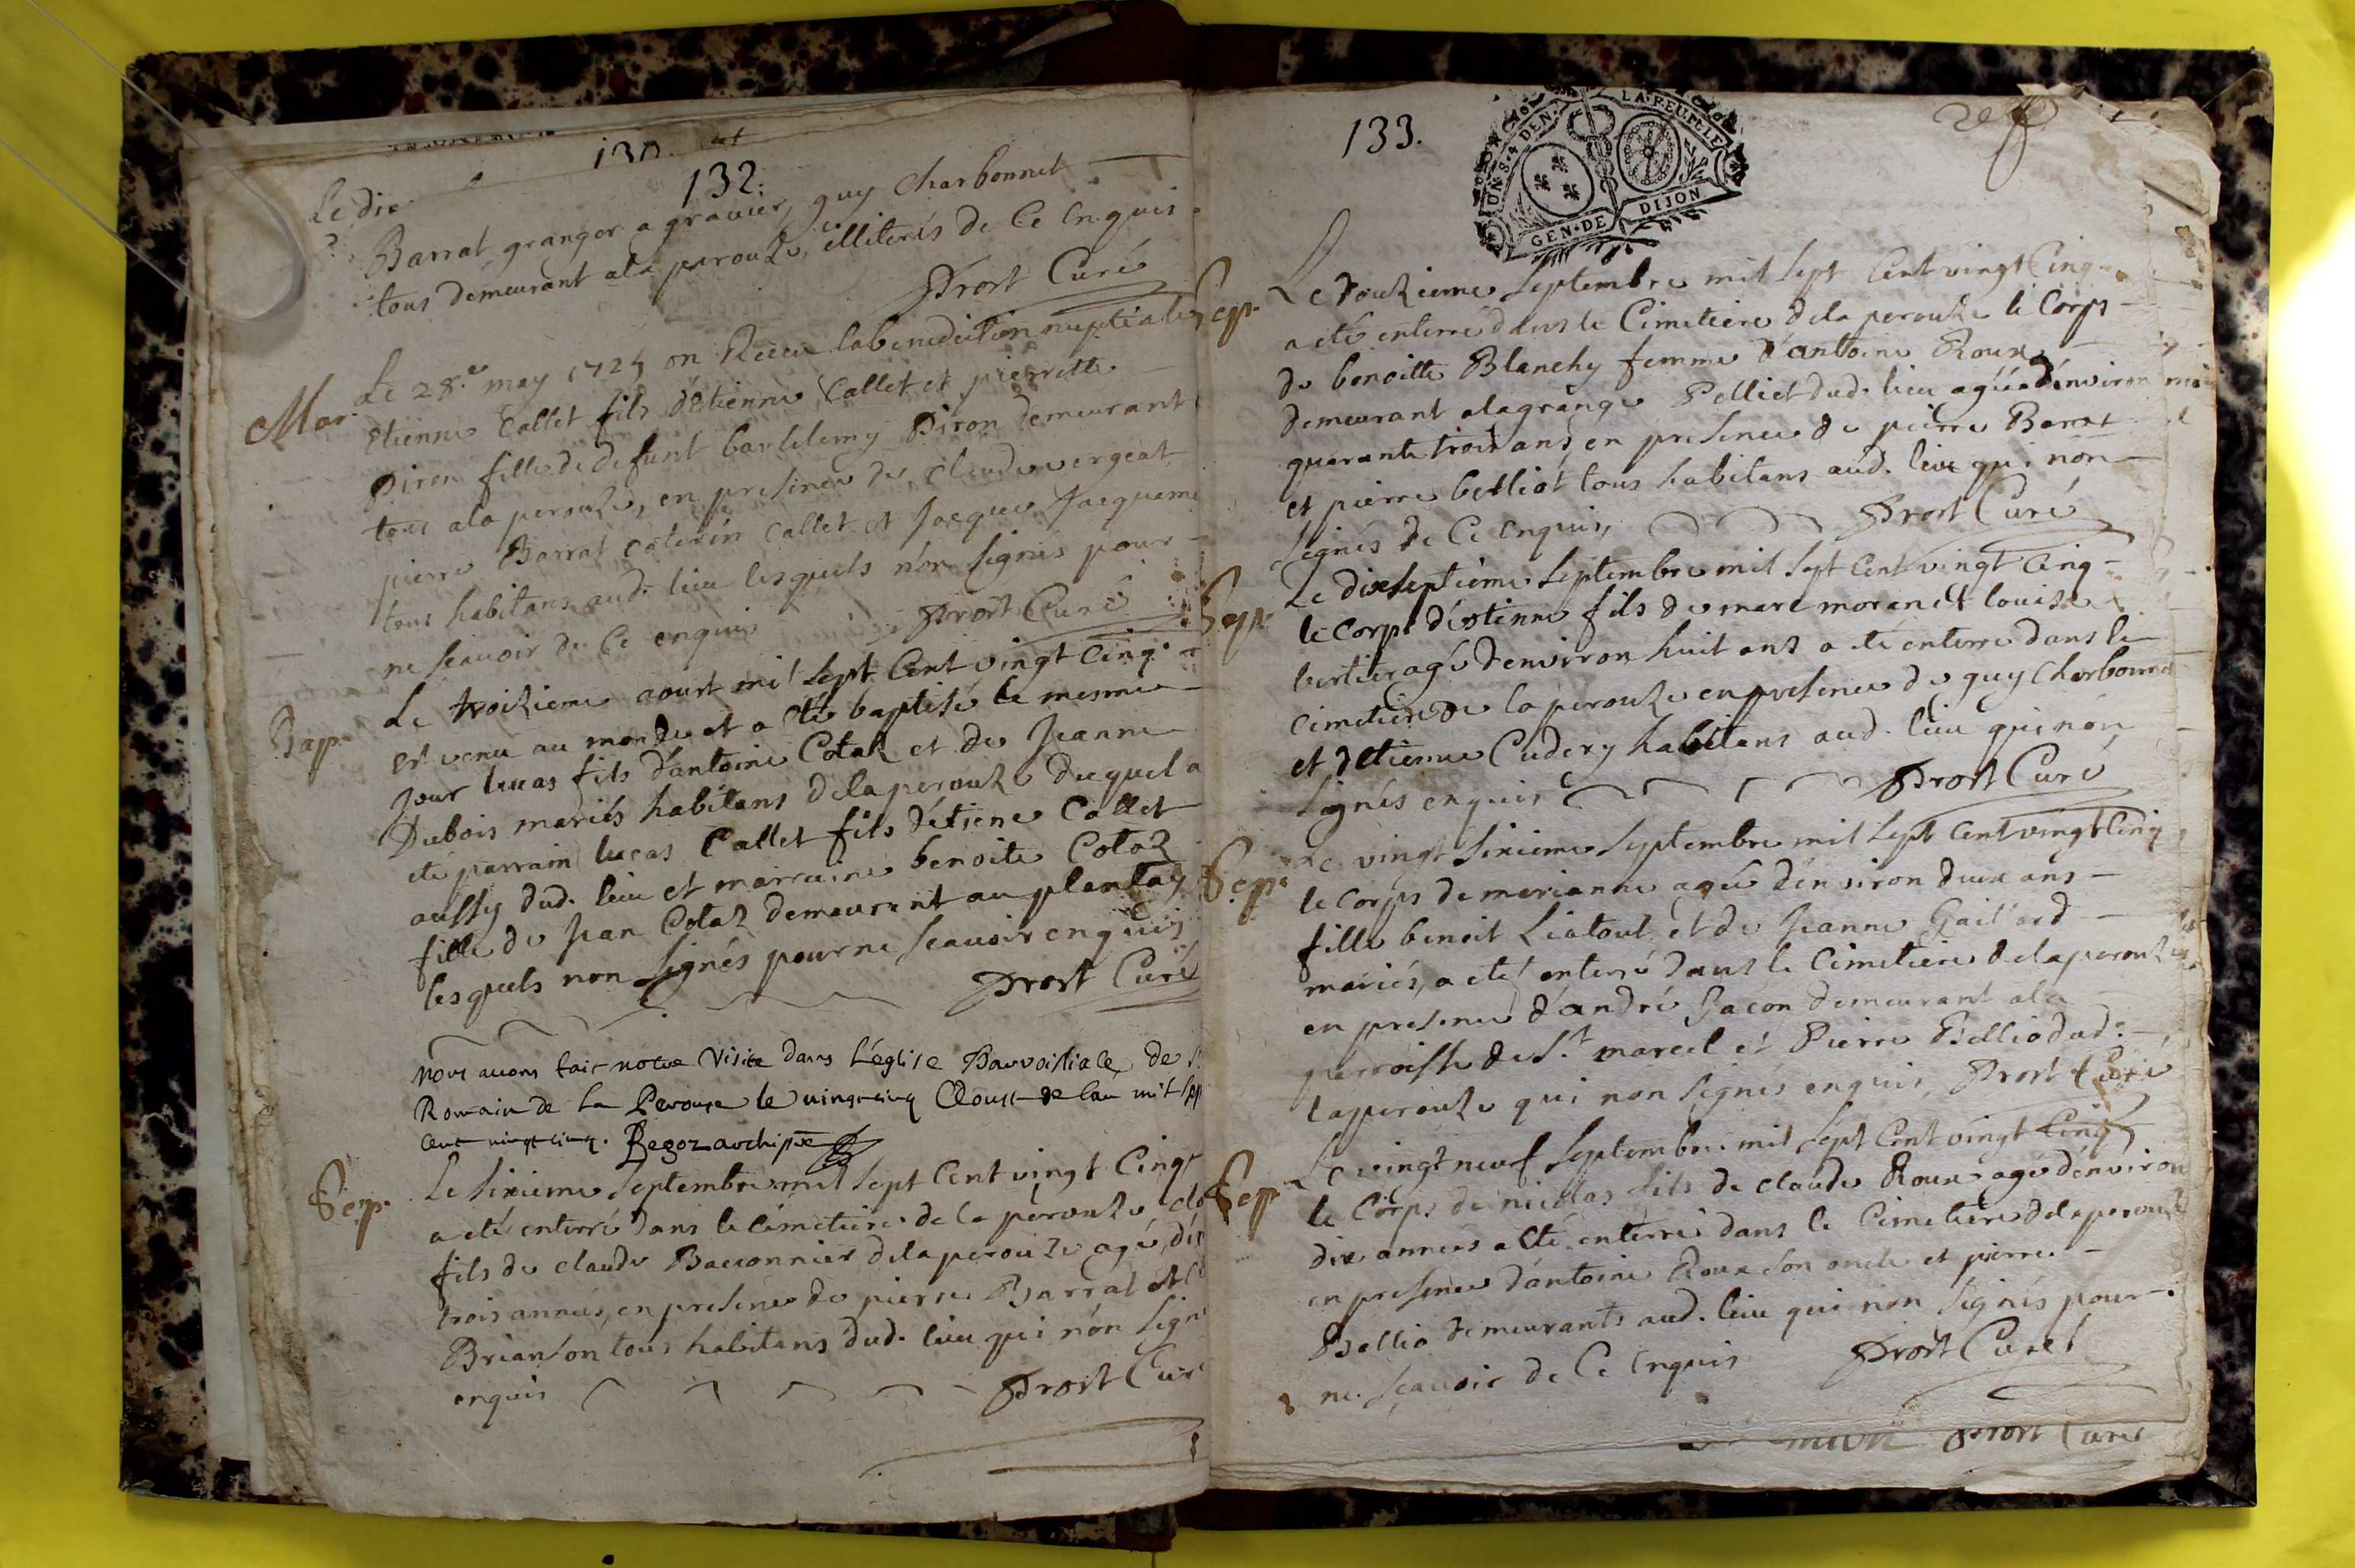 130.
132.
Le di
Barrat granger a gravier, guy Charbonnet
tous demeurant ala perouze, illiterés de Ce Enquis
Prost Curé
Mar.
Le 28.e may 1725 on Receu la benediction nuptiale
etienne Callet fils d'etienne Callet et pierrette
Piron fille de defunt bartelemy Piron demeurant
tous ala perouze, en presence de, claude vergeat
pierre Barrat caterin Callet et Jacque Jacqueme
tous habitans aud. lieu lesquels nón signés pour
ne scavoir de Ce enquis Prost Curé
Bap.
Le troizieme aoust mil sept Cent vingt Cinq.
est venu au monde et a eté baptisé le mesme
Jour lucas fils d'antoine Cotaz et de Jeanne
Dubois mariés habitans dela perouze duquel a
eté parrain lucas Callet fils d'étiene Callet
aussy dud. lieu et marraine benoite Cotaz
fille de Jean Cotaz demeurant au plantay
lesquels non signés pour ne scavoir enquis
Prost Curé
nous avons fait notre Visite dans L'eglise Parroissiale de S.
Romain de La Perouse le vingt cinq Aoust de lan mil sept
cent vingt cinq. Begoz archipre
Sep.
Le sixieme septembre mil sept Cent vingt Cinq
a eté enterré dans le cimetiere de la perouze
fils de claude Baconnier dela perouze agé
trois années, en presence de pierre Barrat et
Brianson tous habitans dud. lieu qui nón sign
enquis Prost Cur
133.
UN.S.4 DEN. LA FEUILLE
GEN.DE DIJON
Sep.
Le douzieme septembre mil sept Cent vingt Cinq
a eté enterré dans le Cimetiere dela perouze le Corps
de benoitte Blanchy femme d'antoine Roux
demeurant alagrange Pelliet dud. lieu agée d'environ
quarante trois ans, en presence de pierre Barrat
et pierre belliot tous habitans aud. lieu qui nón
signés de Ce enquis, Prost Curé
Sep.
Le dixseptieme septembre mil sept Cent vingt Cinq
le Corps d'estienne fils de marc moran et louise
bertier agé d'environ huit ans a eté enterré dans le
cimetiere de la perouze en presence de guy Charbonnet
et d'etienne Cudery habitans aud. lieu qui nón
signés enquis Prost Curé
Sep.
Le vingt sixieme septembre mil sept Cent vingt Cinq
le corps de marianne agée d'environ deux ans
fille benoit Liatout et de Jeanne Gaillard
mariés, a eté enterré dans le Cimetiere dela perouze
en presence d'andré Jacon demeurant ala
parroisse de S.t marcel et Pierre Bellio dud.
laperouze qui non signés enquis, Prost Curé
Sep.
Le vingt neuf septembre mil sept Cent vingt Cinq
le Corps de nicolas fils de claude Roux agé d'environ
dix années a eté enterré dans le Cimetiere dela perouze
en presence d'antoine Roux son oncle et pierre
Bellio demeurants aud. lieu qui nón signés pour
ne scavoir de Ce Enquis Prost Curé
Prost Curé